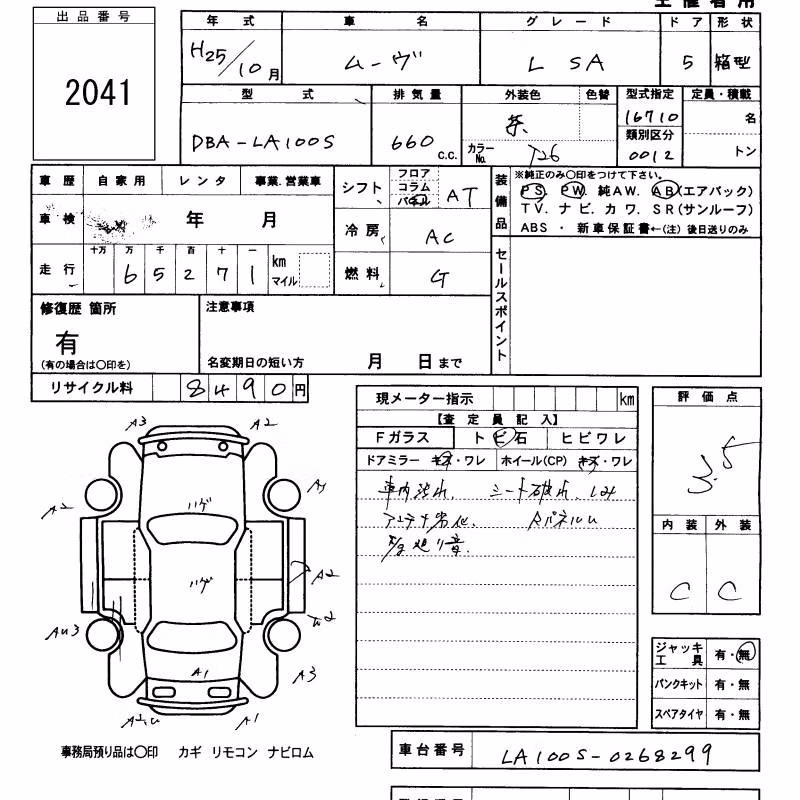 出品番号
2041
年式 車名 グレード ドア 形状
H25/10月 ムーヴ L SA 5 箱型
型式 排気量 外装色 色替 型式指定 定員・積載
DBA-LA100S 660 c.c. 茶 16710 名
カラーNo. T26 類別区分 0012 トン
車歴 自家用 レンタ 事業.営業車
車検 年 月
走行 十万 万 千 百 十 一
6 5 2 7 1 km マイル
シフト フロア コラム パネル AT
冷房 AC
燃料 G
装備品
※純正のみ〇印をつけて下さい。
PS. PW. 純AW. AB(エアバック)
TV. ナビ. カワ. SR(サンルーフ)
ABS ・ 新車保証書←(注) 後日送りのみ
セールスポイント
修復歴 箇所
有
(有の場合は〇印を)
注意事項
名変期日の短い方 月 日まで
リサイクル料 8490円
現メーター指示 km
【査定員記入】
Fガラス トビ石 ヒビワレ
ドアミラー キズ・ワレ ホイール(CP) キズ・ワレ
車内汚れ. シート破れ.
アンテナ劣化. RパネルU
評価点
3.5
内装 外装
C C
A3 A2
ハゲ
A2
ハゲ
A2
AU3
A1
A3
A1
ジャッキ工具 有・無
パンクキット 有・無
スペアタイヤ 有・無
事務局預り品は〇印 カギ リモコン ナビロム
車台番号 LA100S-0268299